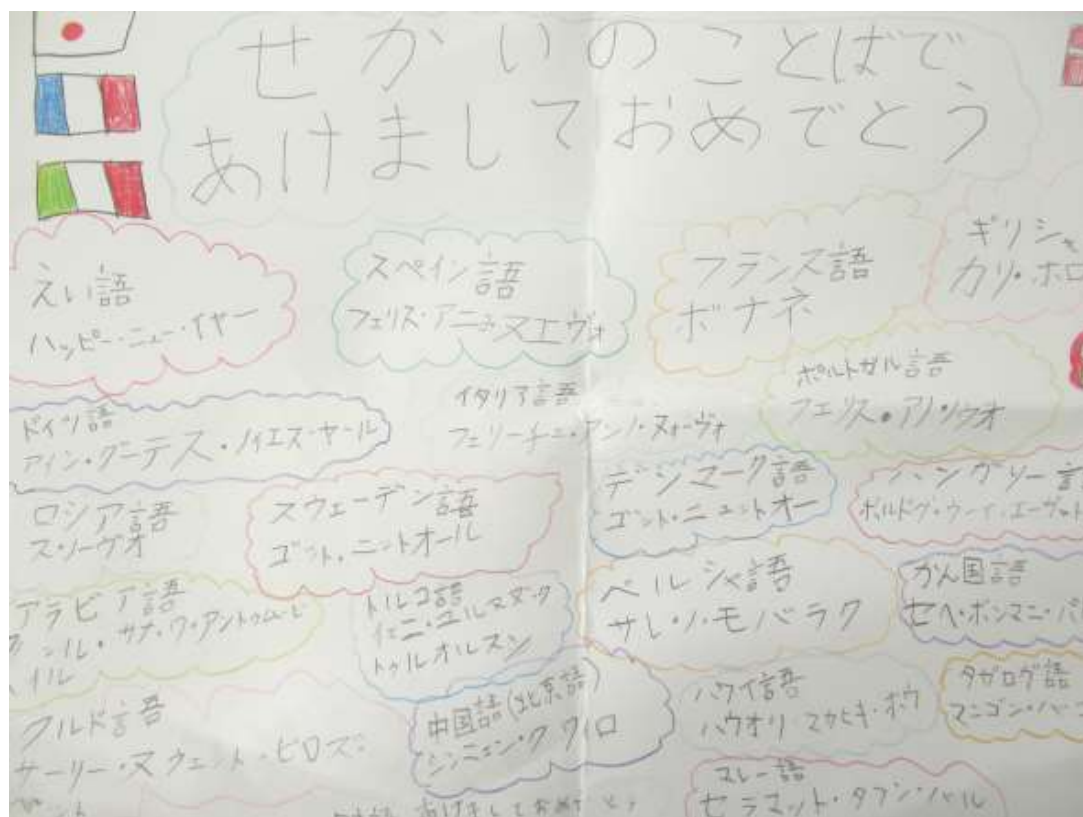 せかいのことばで
あけましておめでとう
えい語
ハッピー・ニュー・イヤー
スペイン語
フェリス・アニョ・ヌエヴォ
フランス語
ボナネ
ギリシャ
カリ・ホロ
ドイツ語
アイン・グーテス・ノイエス・ヤール
イタリア語
フェリーチェ・アンノ・ヌォーヴォ
ポルトガル語
フェリス・アノ・ノヴォ
ロシア語
ス・ノーヴォ
スウェーデン語
ゴット・ニットオール
デンマーク語
ゴット・ニュットオー
ハンガリー語
ボルドグ・ウーイ・エーヴェト
アラビア語
サナ・ワ・アントゥム・ビ
イル
トルコ語
イェニ・ユルヌヌーク
トゥルオルスン
ペルシャ語
サレ・ノ・モバラク
かん国語
セヘ・ボンマニ・パ
クルド語
サーリー・ヌウェート・ピロズ
中国語(北京語)
シンニェン・クワイロ
ハワイ語
ハウオリ マカヒキ・ホウ
タガログ語
マニゴン・バー
あけましておめでとう
マレー語
セラマット・タフン・バル